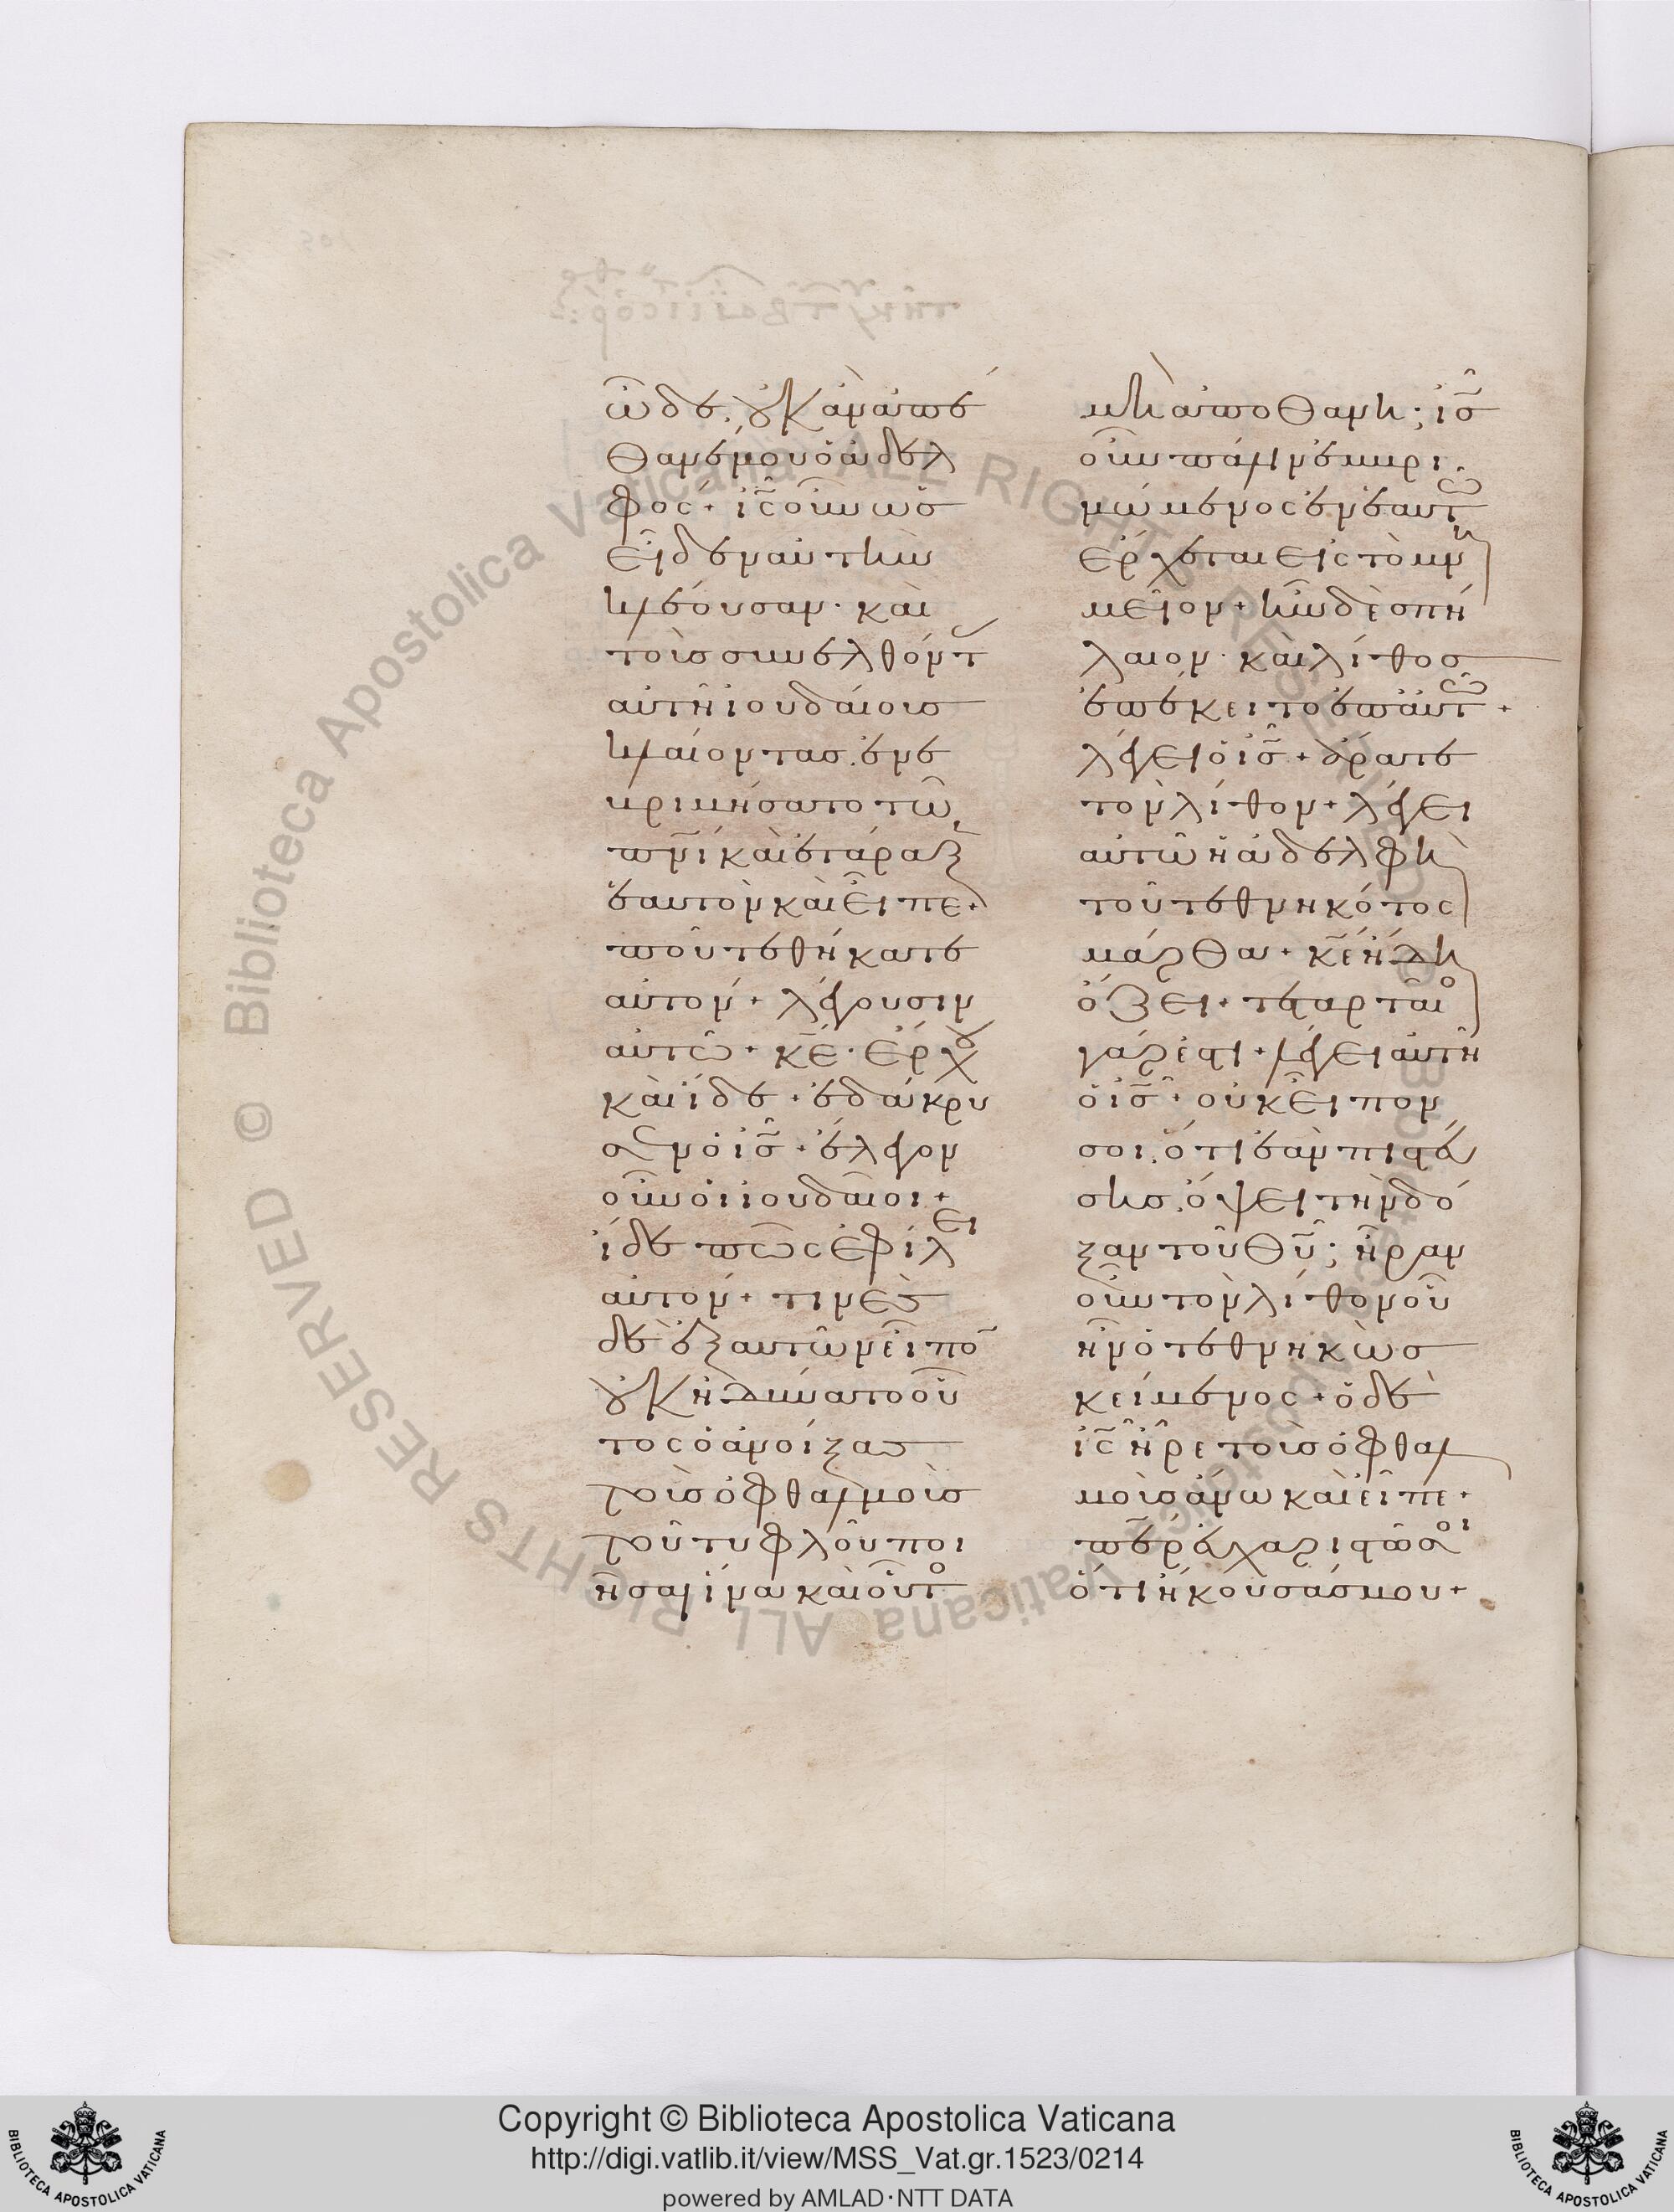 ὧδε, οὐκ ἂν ἀπέ
θανέ μου ὁ ἀδελ
φός + ις οὖν ὡς
εἶδεν αὐτὴν
κλαίουσαν · καὶ
τοὺς συνελθόντ
αὐτῇ ἰουδαίους
κλαίοντας, ἐνε
βριμήσατο τῶ
πνι καὶ ἐτάραξ
ἑαυτὸν καὶ εἶπε +
ποῦ τεθήκατε
αὐτόν + λέγουσιν
αὐτῶ + κε · ἔρχου
καὶ ἴδε + ἐδάκρυ
σεν ὁ ις + ἔλεγον
οὖν οἱ ἰουδαῖοι +
ἴδε πῶς ἐφίλει
αὐτόν + τινὲς
δὲ ἐξ αὐτῶν εἶπον
οὐκ ἠδύνατο οὗ
τος ὁ ἀνοίξας
τοὺς ὀφθαλμοὺς
τοῦ τυφλοῦ ποι
ῆσαι ἵνα καὶ οὗτο
μὴ ἀποθάνη; ις
οὖν πάλιν ἐμβρι
μώμενος ἐν ἑαυτῶ
ἔρχεται εἰς τὸ μνη
μεῖον + ἦν δὲ σπή
λαιον · καὶ λίθος
ἐπέκειτο ἐπ αὐτῶ +
λέγει ὁ ις + ἄρατε
τὸν λίθον + λέγει
αὐτῶ ἡ ἀδελφὴ
τοῦ τεθνηκότος
μάρθα + κε ἤδη
ὄζει + τεταρταῖο
γάρ ἐστι + λέγει αὐτῆ
ὁ ις + οὐκ εἶπόν
σοι, ὅτι ἐὰν πιστεύ
σης, ὄψει τὴν δό
ξαν τοῦ θυ; ἦραν
οὖν τὸν λίθον οὗ
ἦν ὁ τεθνηκὼς
κείμενος + ὁ δὲ
ις ἦρε τοὺς ὀφθαλ
μοὺς ἄνω καὶ εἶπε +
περ εὐχαριστῶ σοι
ὅτι ἤκουσάς μου +
Copyright © Biblioteca Apostolica Vaticana
http://digi.vatlib.it/view/MSS_Vat.gr.1523/0214
powered by AMLAD·NTT DATA
BIBLIOTECA APOSTOLICA VATICANA
BIBLIOTECA APOSTOLICA VATICANA
© Biblioteca Apostolica Vaticana ALL RIGHTS RESERVED
© Biblioteca Apostolica Vaticana ALL RIGHTS RESERVED